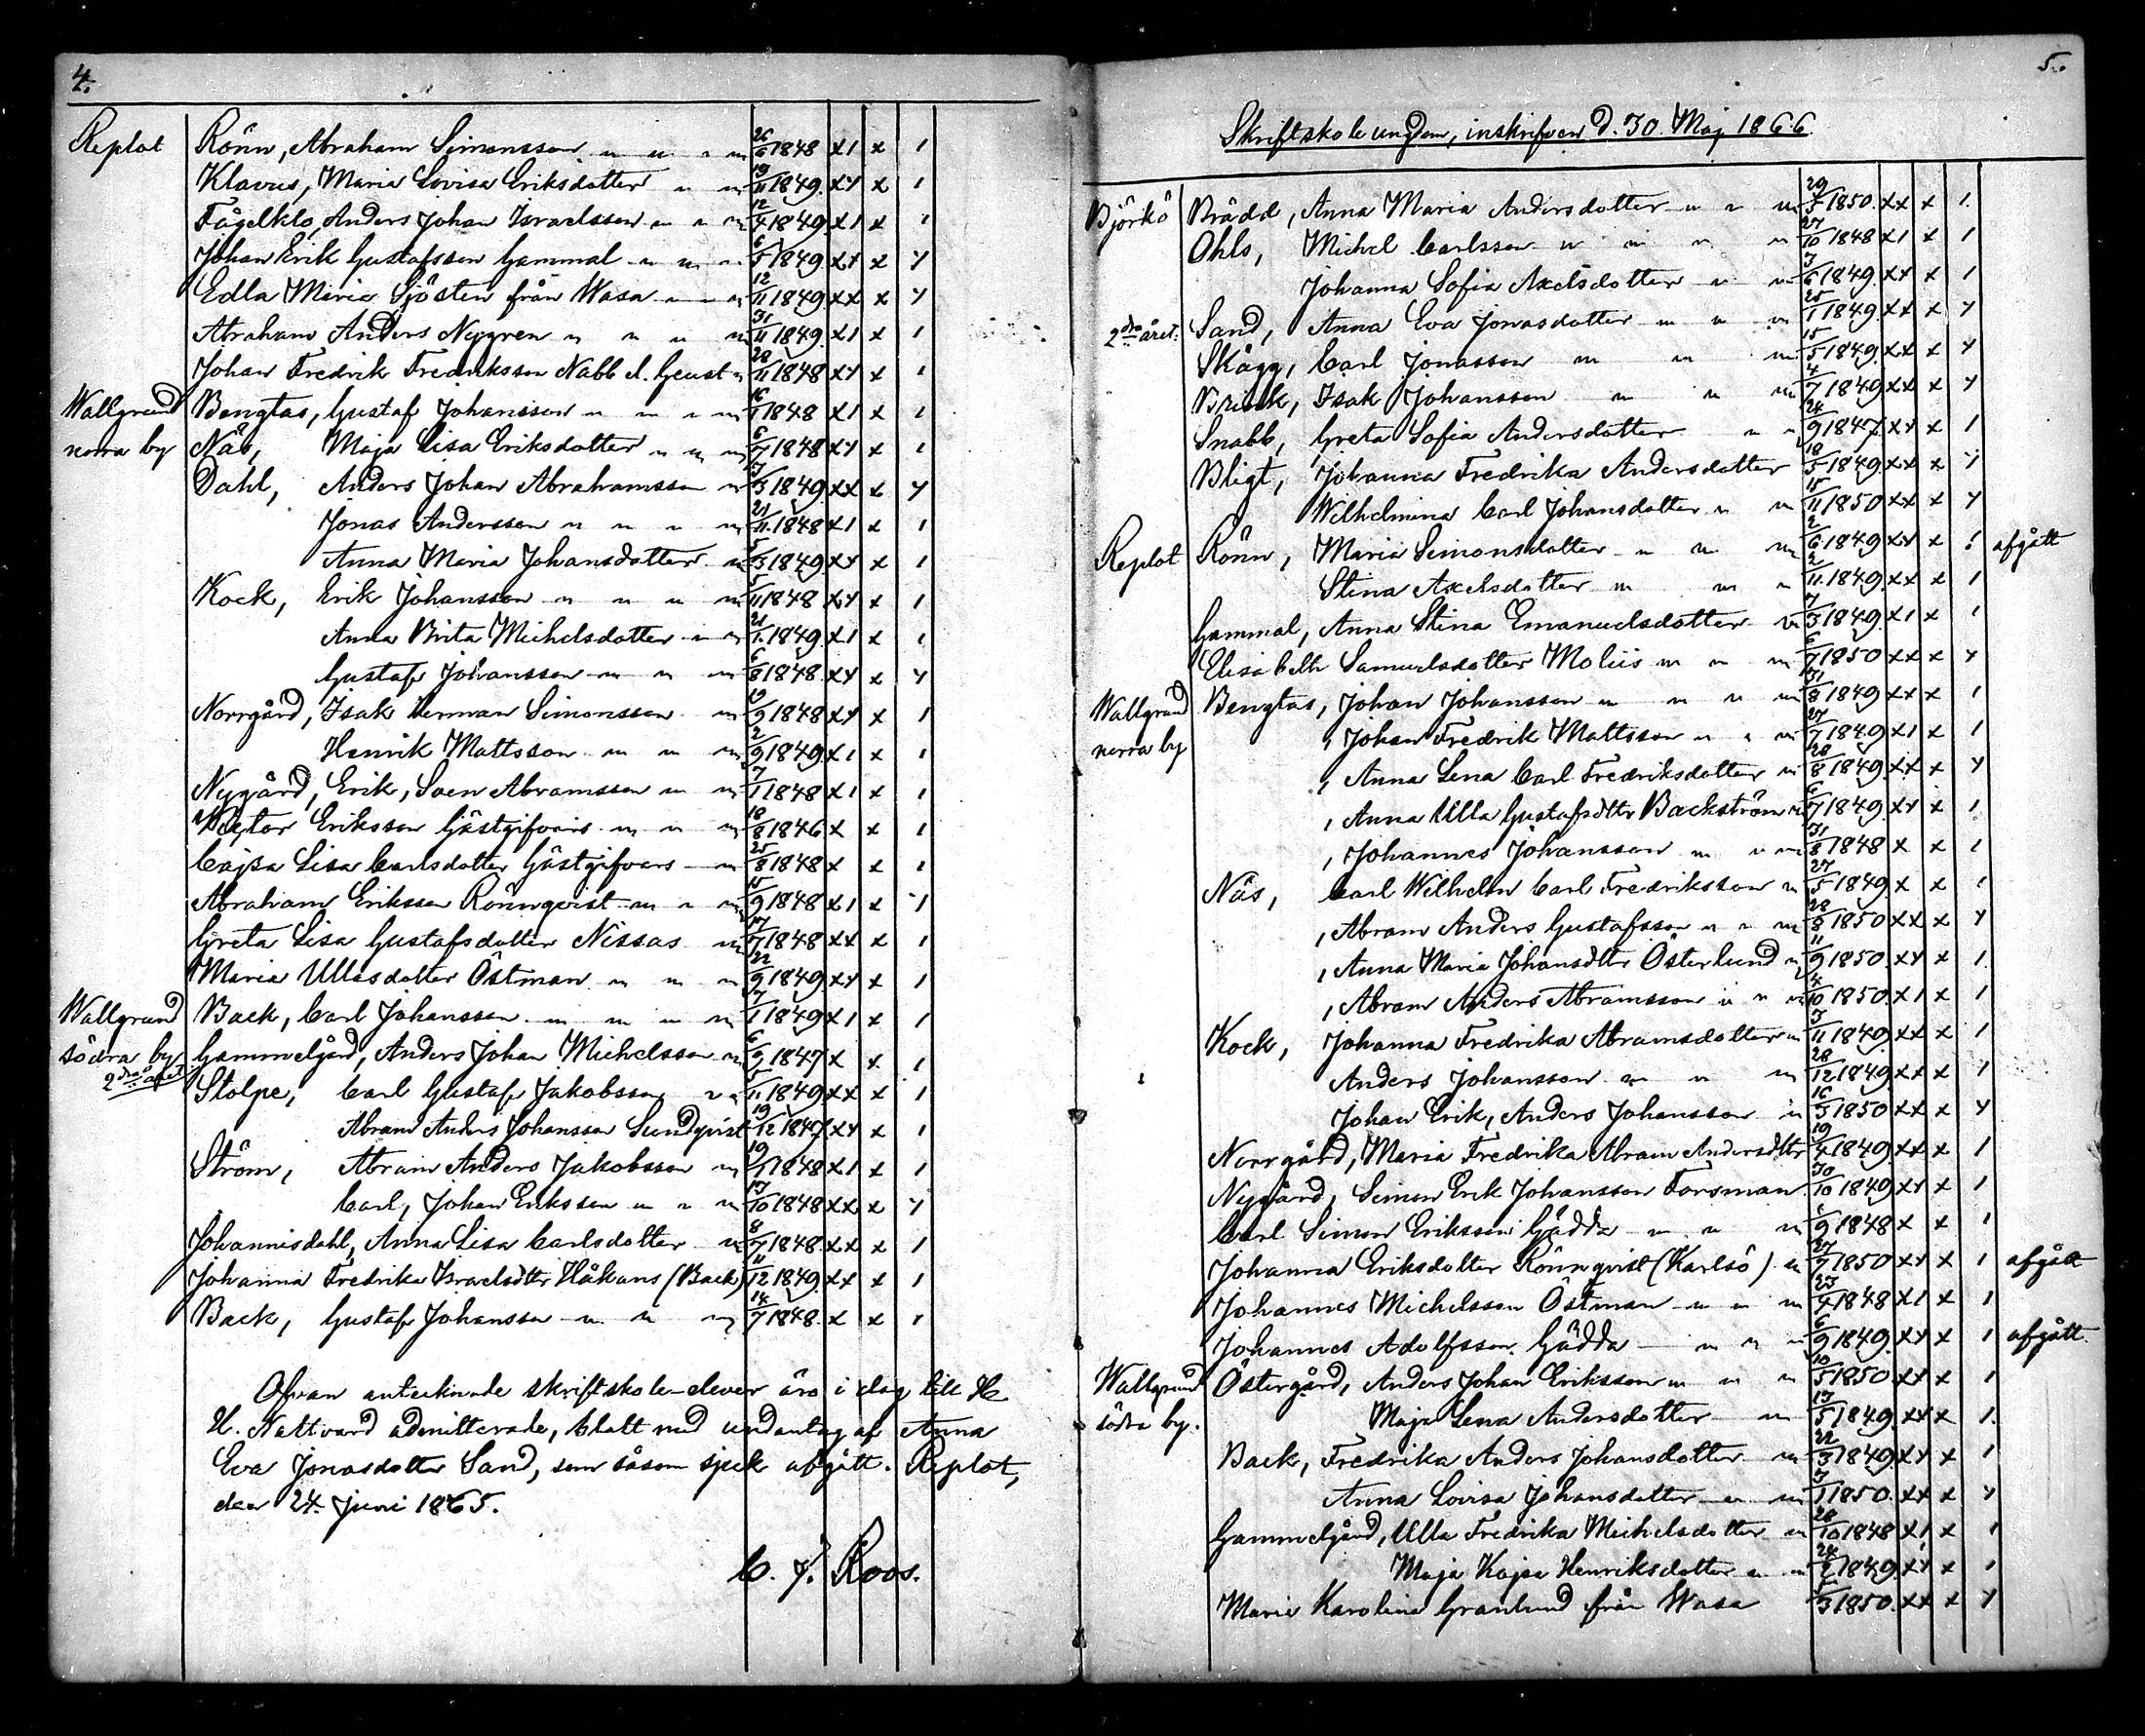 4.
Replot Rönn, Abraham Simonsson 26/6 1848 x1 x 1
Klavus, Maria Lovisa Eriksdotter 19/11 1849. xy x 1
Fågelklo, Anders Johan Israelsson 12/4 1849 x1 x 1
Johan Erik Gustafsson Gammal 6/5 1849 xy x y
Edla Maria Sjösten från Wasa 12/11 1849 xx x y
Abraham Anders Nygren 31/11 1849. x1 x 1
Johan Fredrik Fredriksson Nabb 28/11 1848 xy x 1
Wallgrund Bengtas, Gustaf Johansson 16/1 1848 x1 x 1
norra by Näs, Maja Lisa Eriksdotter 6/7 1848 xy x 1
Dahl, Anders Johan Abrahamsson 3/3 1849 xx x y
Jonas Andersson 21/11 1848 x1 x 1
Anna Maria Johansdotter 5/3 1849 xy x 1
Kock, Erik Johansson 5/11 1848 xy x 1
Anna Brita Michelsdotter 21/1 1849. x1 x 1
Gustaf Johansson 6/8 1848. xy x y
Norrgård, Isak Herman Simonsson 19/9 1848 xy x 1
Henrik Mattsson 2/9 1849 x1 x 1
Nygård, Erik, Soen Abramsson 7/1 1848 x1 x 1
Victor Eriksson Gästgifvars 18/8 1846 x x 1
Cajsa Lisa Carlsdotter Gästgifvars 25/8 1848 x x 1
Abraham Eriksson Rönnqvist 15/9 1848 x1 x y
Greta Lisa Gustafsdotter Nissas 17/7 1848 xx x 1
Maria Ullasdotter Östman 22/9 1849 xy x 1
Wallgrund Back, Carl Johansson 7/1 1849 x1 x 1
södra by Gammelgård, Anders Johan Michelsson 6/9 1847 x x 1
2dra året. Stolpe, Carl Gustaf Jakobsson 5/11 1849 xx x 1
Abram Anders Johansson Sundqvist 19/12 1847 xy x 1
Ström, Abram Anders Jakobsson 19/1 1848 x1 x 1
Carl, Johan Eriksson 17/10 1848 xx x y
Johannisdahl, Anna Lisa Carlsdotter 8/7 1848. xx x 1
Johanna Fredrika Israelsdttr Håkans (Back) 11/12 1849. xx x 1
Back, Gustaf Johansson 14/7 1848. x x 1
Ofvan antecknade skriftskole-elever äro i dag till H.
H. Nattvard admitterade, blott med undantag af Anna
Eva Jonasdotter Sand, som såsom sjuk afgått. Replot,
den 24. Juni 1865.
C. J. Roos.
5.
Skriftskole ungdom, inskrifven d. 30 Maj 1866.
Björkö Brådd, Anna Maria Andersdotter 29/5 1850. xx x 1
Ohls, Michel Carlsson 27/10 1848 x1 x 1
Johanna Sofia Axelsdotter 3/6 1849. xy x 1
2dra året. Sand, Anna Eva Jonasdotter 25/1 1849. xx x y
Skägg, Carl Jonasson 15/5 1849. xx x y
Brink, Isak Johansson 4/7 1849 xx x y
Snabb, Greta Sofia Andersdotter 24/9 1847. xy x 1
Bligt, Johanna Fredrika Andersdotter 18/5 1849. xx x y
Wilhelmina Carl Johansdotter 15/11 1850 xx x y
Replot Rönn, Maria Simonsdotter 2/6 1849 xy x 1 afgått
Stina Axelsdotter 2/11 1849. xx x 1
Gammal, Anna Stina Emanuelsdotter 7/3 1849. x1 x 1
Elisabeth Samuelsdotter Moliis 6/7 1850 xx x y
Wallgrund Bengtas, Johan Johansson 31/8 1849 xx x 1
norra by , Johan Fredrik Mattsson 27/7 1849 x1 x 1
, Anna Lena Carl Fredriksdotter 28/8 1849 xx x y
, Anna Ulla Gustafsdttr Backström 6/7 1849. xy x 1
, Johannes Johansson 31/8 1848 x x 1
Näs, Carl Wilhelm Carl Fredriksson 27/5 1849. x x 1
, Abram Anders Gustafsson 28/8 1850 xx x y
, Anna Maria Johansdttr Österlund 11/9 1850. xy x 1
, Abram Anders Abramsson 4/10 1850. x1 x 1
Kock, Johanna Fredrika Abramsdotter 3/11 1849 xx x 1
Anders Johansson 28/12 1849 xx x 1
Johan Erik, Anders Johansson 16/3 1850 xx x y
Norrgård, Maria Fredrika Abram Andersdttr 19/4 1849 xx x 1
Nygård, Simon Erik Johansson Forsman 30/10 1849 xy x 1
Carl Simon Eriksson Gädda 1/9 1848 x x 1
Johanna Eriksdotter Rönnqvist (Karlsö) 27/7 1850 xy x 1 afgått
Johannes Michelsson Östman 23/4 1848 x1 x 1
Johannes Adolfsson Gädda 6/9 1849. xy x 1 afgått.
Wallgrund Östergård, Anders Johan Eriksson 10/5 1850. xy x 1
södra by. Maja Lena Andersdotter 13/5 1849. xy x 1.
Back, Fredrika Anders Johansdotter 22/3 1849. xy x 1
Anna Lovisa Johansdotter 3/1 1850. xx x y
Gammelgård, Ulla Fredrika Michelsdotter 28/10 1848 x1 x 1
Maja Kajsa Henriksdotter 24/2 1849. xy x 1
Maria Karolina Granlund från Wasa 5/3 1850. xx x y